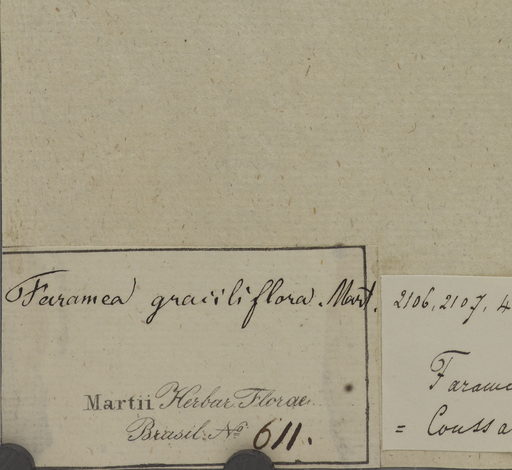 Faramea graciliflora. Mart.
Martii Herbar. Florae
Brasil. No 611.
2106, 2107, 4
Farame
= Coussa